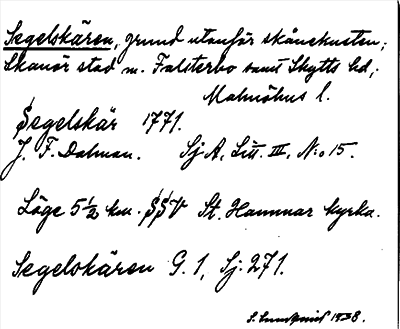 Segelskären, grund utanför skånekusten;
Skanör stad m. Falsterbo samt Skytts hd,;
Malmöhus l.
Segelskär 1771.
J. F. Dalman. Sj A, Litt. III, N:o 15.
Läge 5½ km. SSV St. Hammar kyrka.
Segelskären G. 1, Sj. 271.
S. Lundquist 1938.